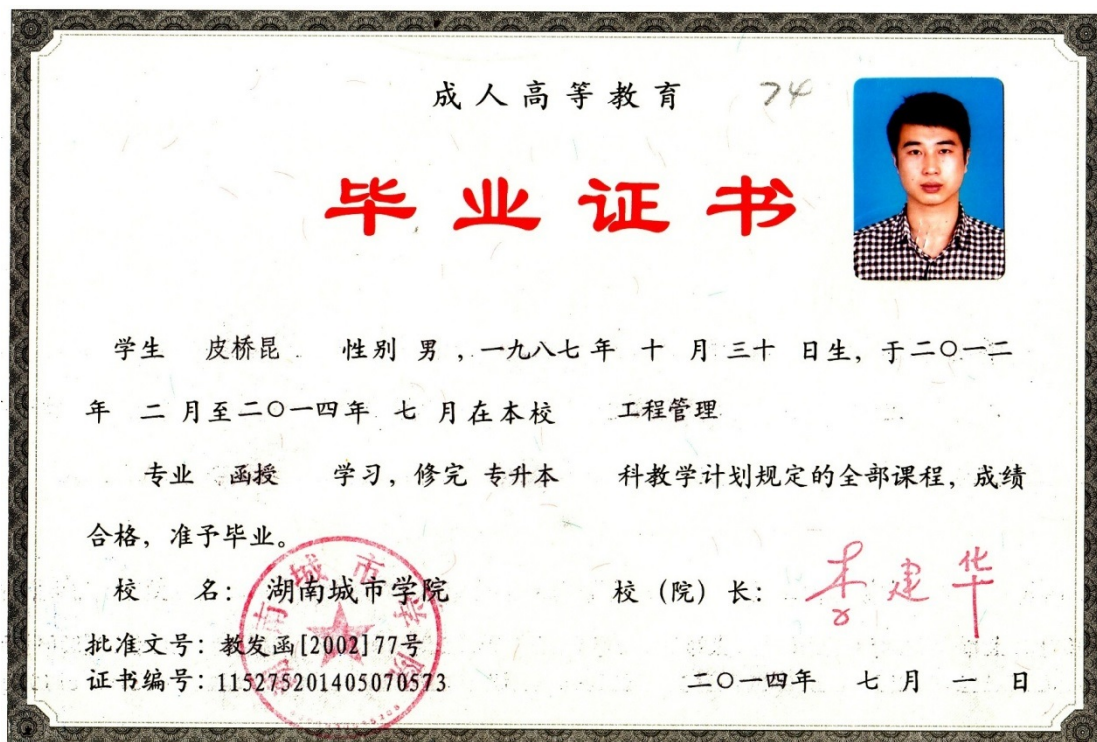 成人高等教育 74
毕业证书
学生 皮桥昆 性别 男,一九八七年 十 月 三十 日生,于二〇一二
年 二 月至二〇一四年 七 月在本校 工程管理
专业 函授 学习,修完 专升本 科教学计划规定的全部课程,成绩
合格,准予毕业。
校 名:湖南城市学院 校(院)长:李建华
批准文号:教发函[2002]77号
证书编号:115275201405070573 二〇一四年 七 月 一 日
湖南城市学院